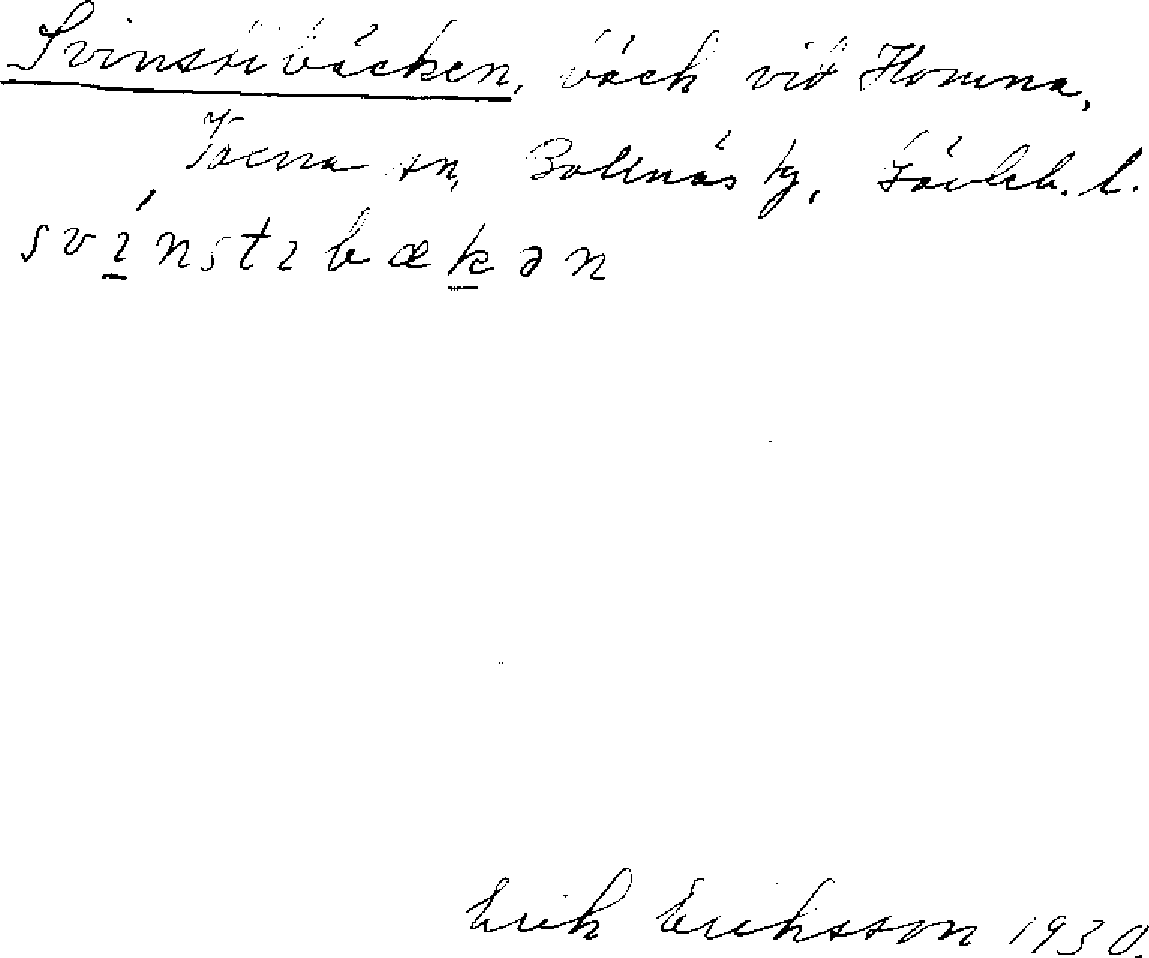 Svinstibäcken, bäck vid Homna,
Voxna sn, Bollnäs tg, Gävleb. l.
svı́nstıbækən
Erik Eriksson 1930.